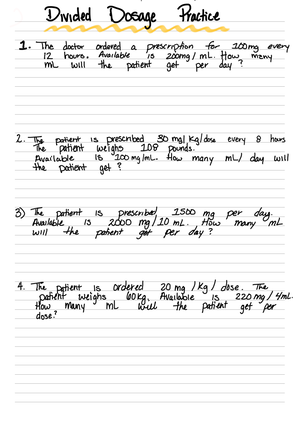 Divided Dosage Practice
1. The doctor ordered a prescription for 100mg every
12 hours. Available is 200mg/mL. How many
mL will the patient get per day?
2. The patient is prescribed 30 mg/kg/dose every 8 hours
The patient weighs 108 pounds.
Available is 100mg/mL. How many mL/day will
the patient get?
3) The patient is prescribed 1500 mg per day.
Available is 2000 mg/10 mL. How many mL
will the patient get per day?
4. The patient is ordered 20 mg/kg/dose. The
patient weighs 60kg. Available is 220mg/4mL.
How many mL will the patient get per
dose?